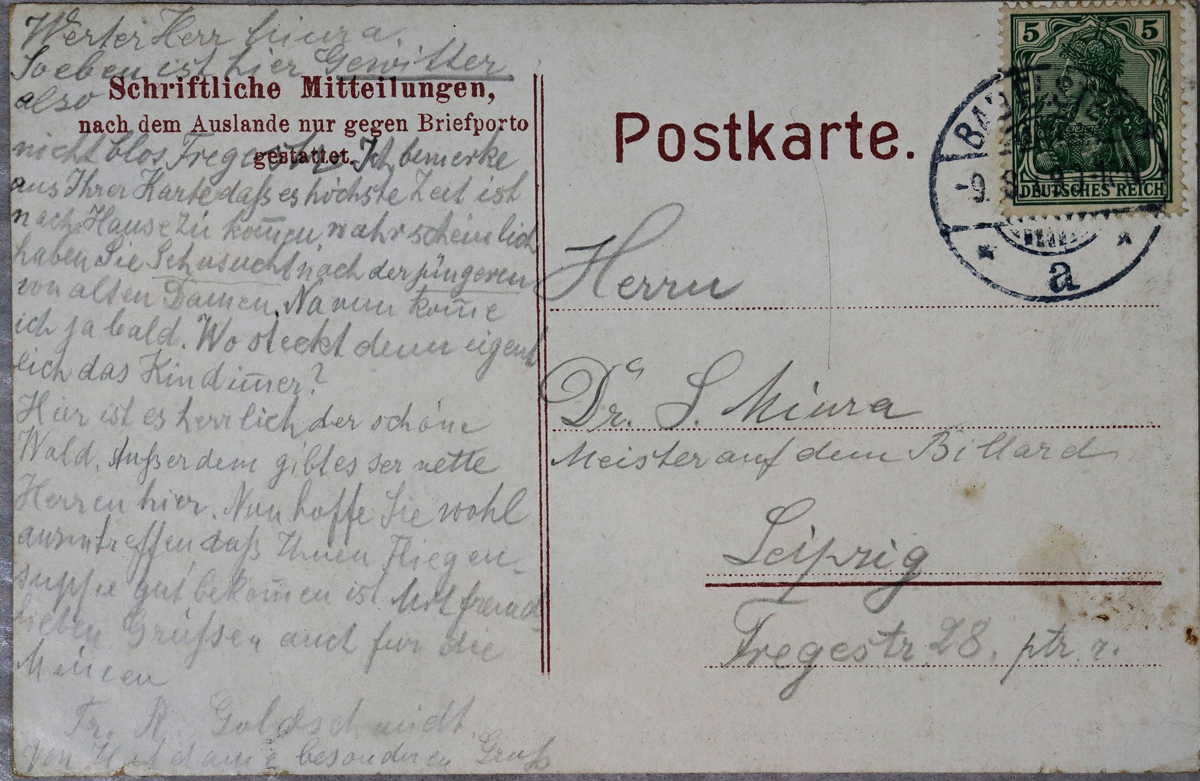 Werter Herr Miura.
Soeben ist hier Gewitter
also
Schriftliche Mitteilungen,
nach dem Auslande nur gegen Briefporto
gestattet.
nicht blos Ich bemerke
aus Ihrer Karte daß es höchste Zeit ist
nach Hause zu kom̅en, wahrscheinlich
haben Sie Sehnsucht nach der jüngeren
von alten Damen. Na nun kom̅e
ich ja bald. Wo steckt denn eigent
lich das Kind im̅er?
Hier ist es herrlich der schöne
Wald. Außerdem gibt es ser nette
Herren hier. Nun hoffe Sie wohl
anzutreffen daß Ihnen Fliegen-
suppe gut bekom̅en ist Mit freund
lichen Grüßen auch für die
Meinen
Fr. R. Goldschmidt.
von besonderen Gruß
Postkarte.
5 5
DEUTSCHES REICH
a
Herrn
Dr. S. Miura
Meister auf dem Billard
Leipzig
Fregestr. 28. ptr. r.